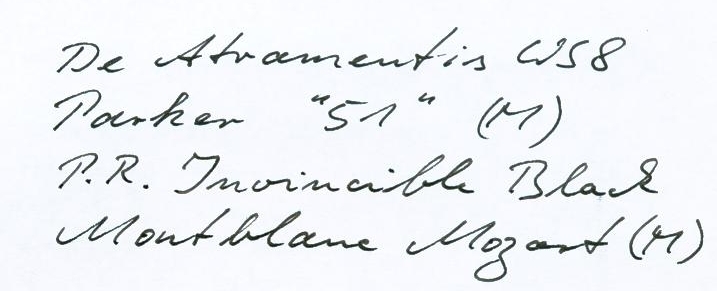 De Atramentis WS8
Parker "51" (M)
P.R. Invincible Black
Montblanc Mozart (M)